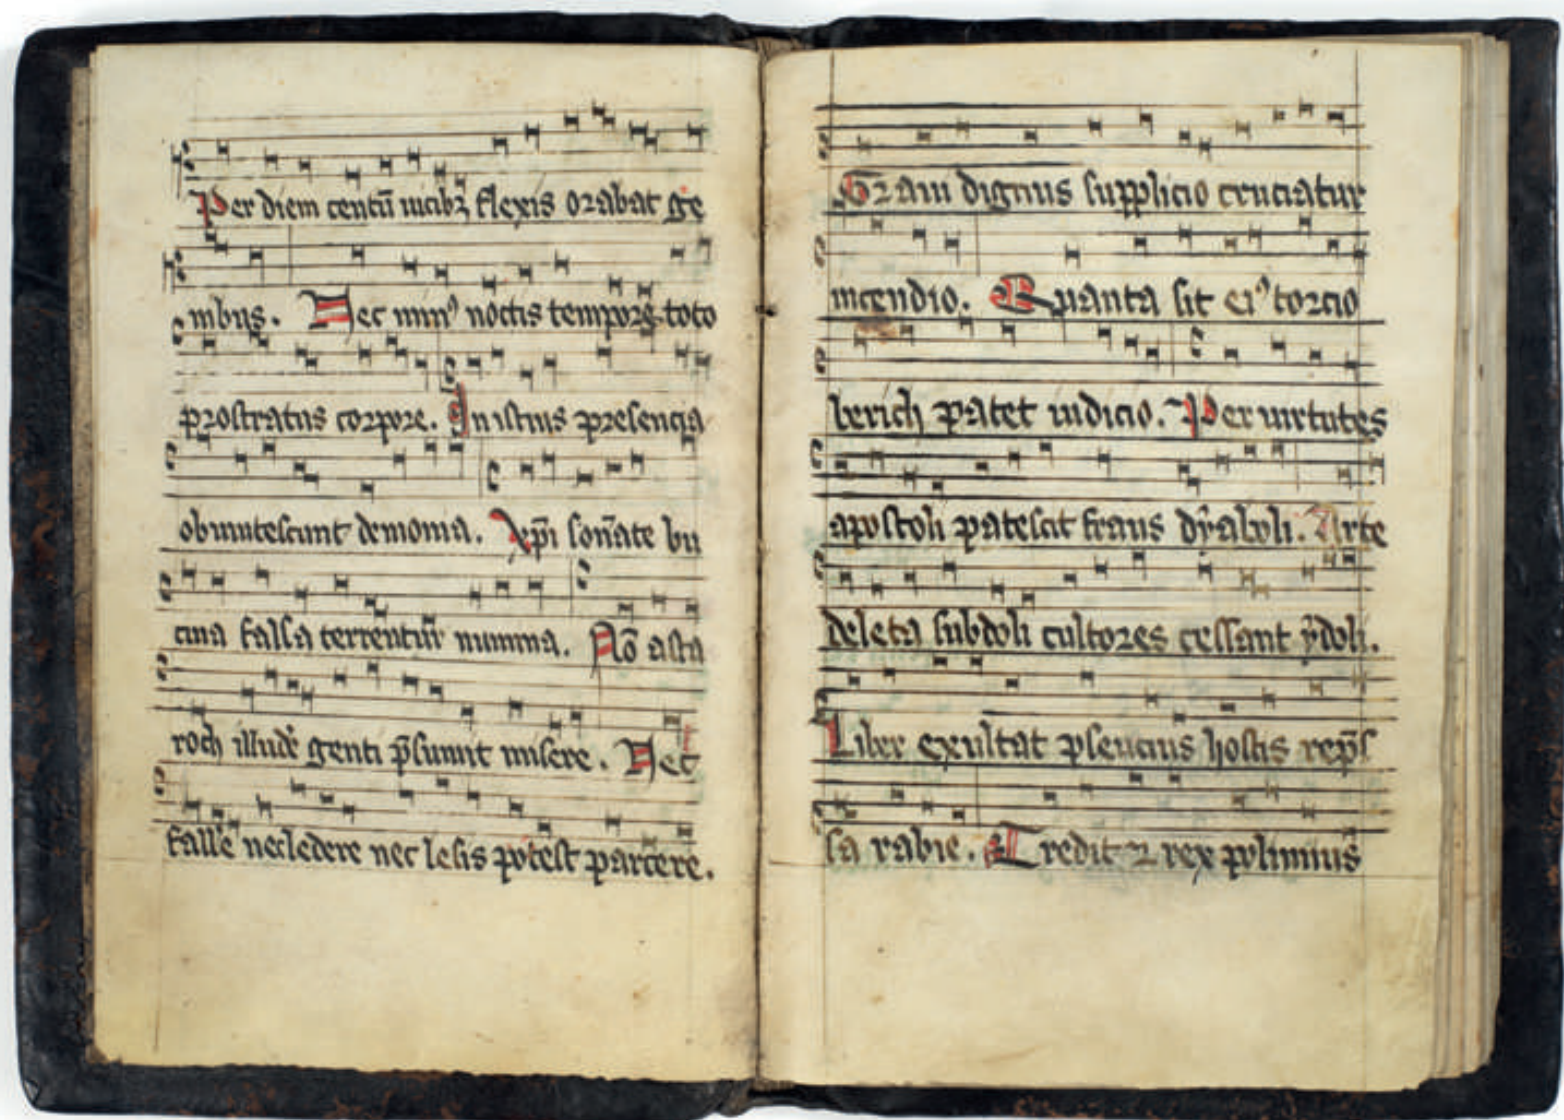 Per diem centū uicibꝫ flexis orabat ge
nibus. Nec minꝰ noctis tempore toto
prostratus corpore. In istius presencia
obmutescunt demonia. Xp̄i sonāte bu
cina falsa terrentur numina. Nō asta
roth illudē genti p̄sumit misere. Nec
fallē nec ledere nec lesis potest parcere.
Gram dignus supplicio cruciatur
incendio. Quanta sit eiꝰ torcio
berich patet iudicio. Per uirtutes
apostoli patescit fraus dyaboli. Arte
deleta subdoli cultores cessant ydoli.
Liber exultat pseucius hostis rep̄s
sa rabie. Credit ⁊ rex polimius